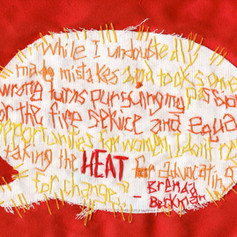 While I undoubtedly
made mistakes and took some
wrong turns pursuing my passion
for the fire service and equal
opportunities for women, I don't
taking the HEAT for advocating
for change."
- Brenda
Berkman